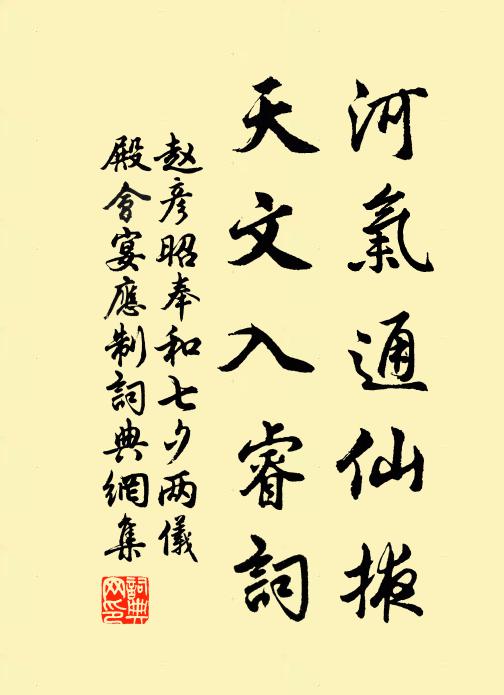 河氣通仙掖
天文入睿詞
赵彦昭奉和七夕两儀
殿會宴應制詞典網集
詞典网印